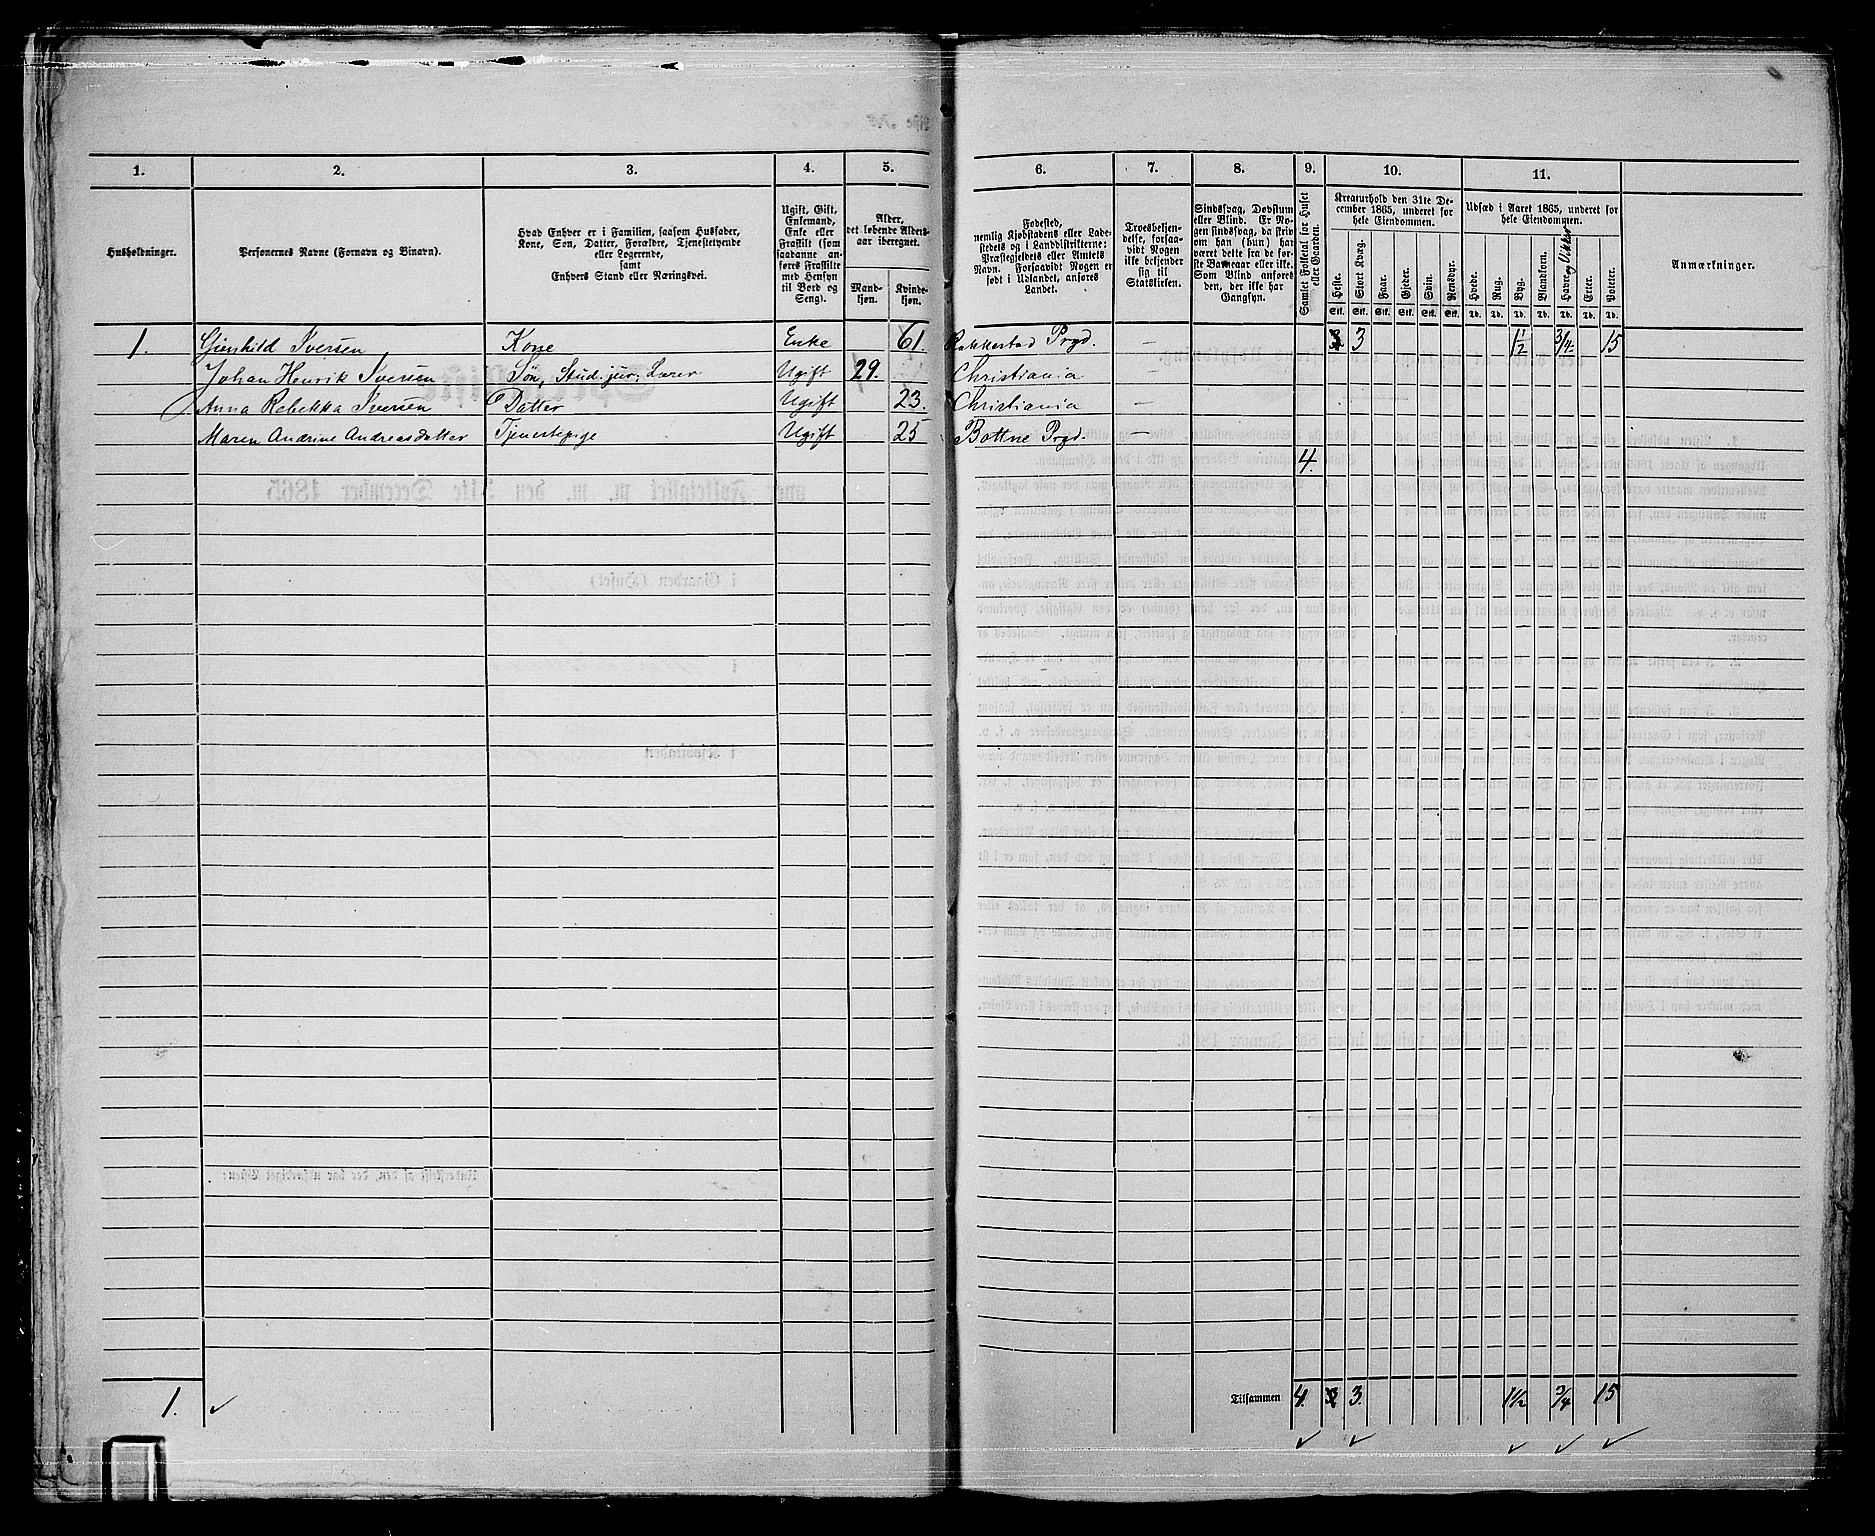 1. 2. 3. 4. 5. 6. 7. 8. 9. 10. 11.
Husholdninger.
Personernes Navne (Fornavn og Binavn).
Hvad Enhver er i Familien, saasom Husfader,
Kone, Søn, Datter, Forældre, Tjenestetyende
eller Logerende,
samt
Enhvers Stand eller Næringsvei.
Ugift, Gift,
Enkemand,
Enke eller
Fraskilt (som
saadanne an-
føres Fraskilte
med Hensyn
til Bord og
Seng).
Alder,
det løbende Alders-
aar iberegnet.
Mand-
kjøn.
Kvinde-
kjøn.
Fødested,
nemlig Kjøbstadens eller Lade-
stedets og i Landdistrikterne:
Præstegjeldets eller Amtets
Navn. Forsaavidt Nogen er
født i Udlandet, anføres
Landet.
Troesbekjen-
delse, forsaa-
vidt Nogen
ikke bekjender
sig til
Statskirken.
Sindssvag, Døvstum
eller Blind. Er No-
gen sindssvag, da skriv
om han (hun) har
været dette fra de før-
ste Barneaar eller ikke.
Som Blind anføres
den, der ikke har
Gangsyn.
Samlet Folketal for Huset
eller Gaarden.
Kreaturhold den 31te De-
cember 1865, underet for
hele Eiendommen.
Heste. Stort Kvæg. Faar. Gjeder. Svin. Rensdyr.
Stk. Stk. Stk. Stk. Stk. Stk.
Udsæd i Aaret 1865, underet for
hele Eiendommen.
Hvede. Rug. Byg. Blandkorn. Havre og Vikker Erter. Poteter.
Td. Td. Td. Td. Td. Td. Td.
Anmærkninger.
1. Iversen Kone Enke 61. Rakkestad Prgd. — 3 1½ 3/4 15
Johan Henrik Iversen Søn, Stud. jur; Lærer Ugift 29. Christiania —
Anna Rebekka Iversen Datter Ugift 23. Christiania —
Maren Andrine Andreasdatter Tjenestepige Ugift 25 Prgd. —
4.
1. Tilsammen 4. 3. 1½ 3/4 15